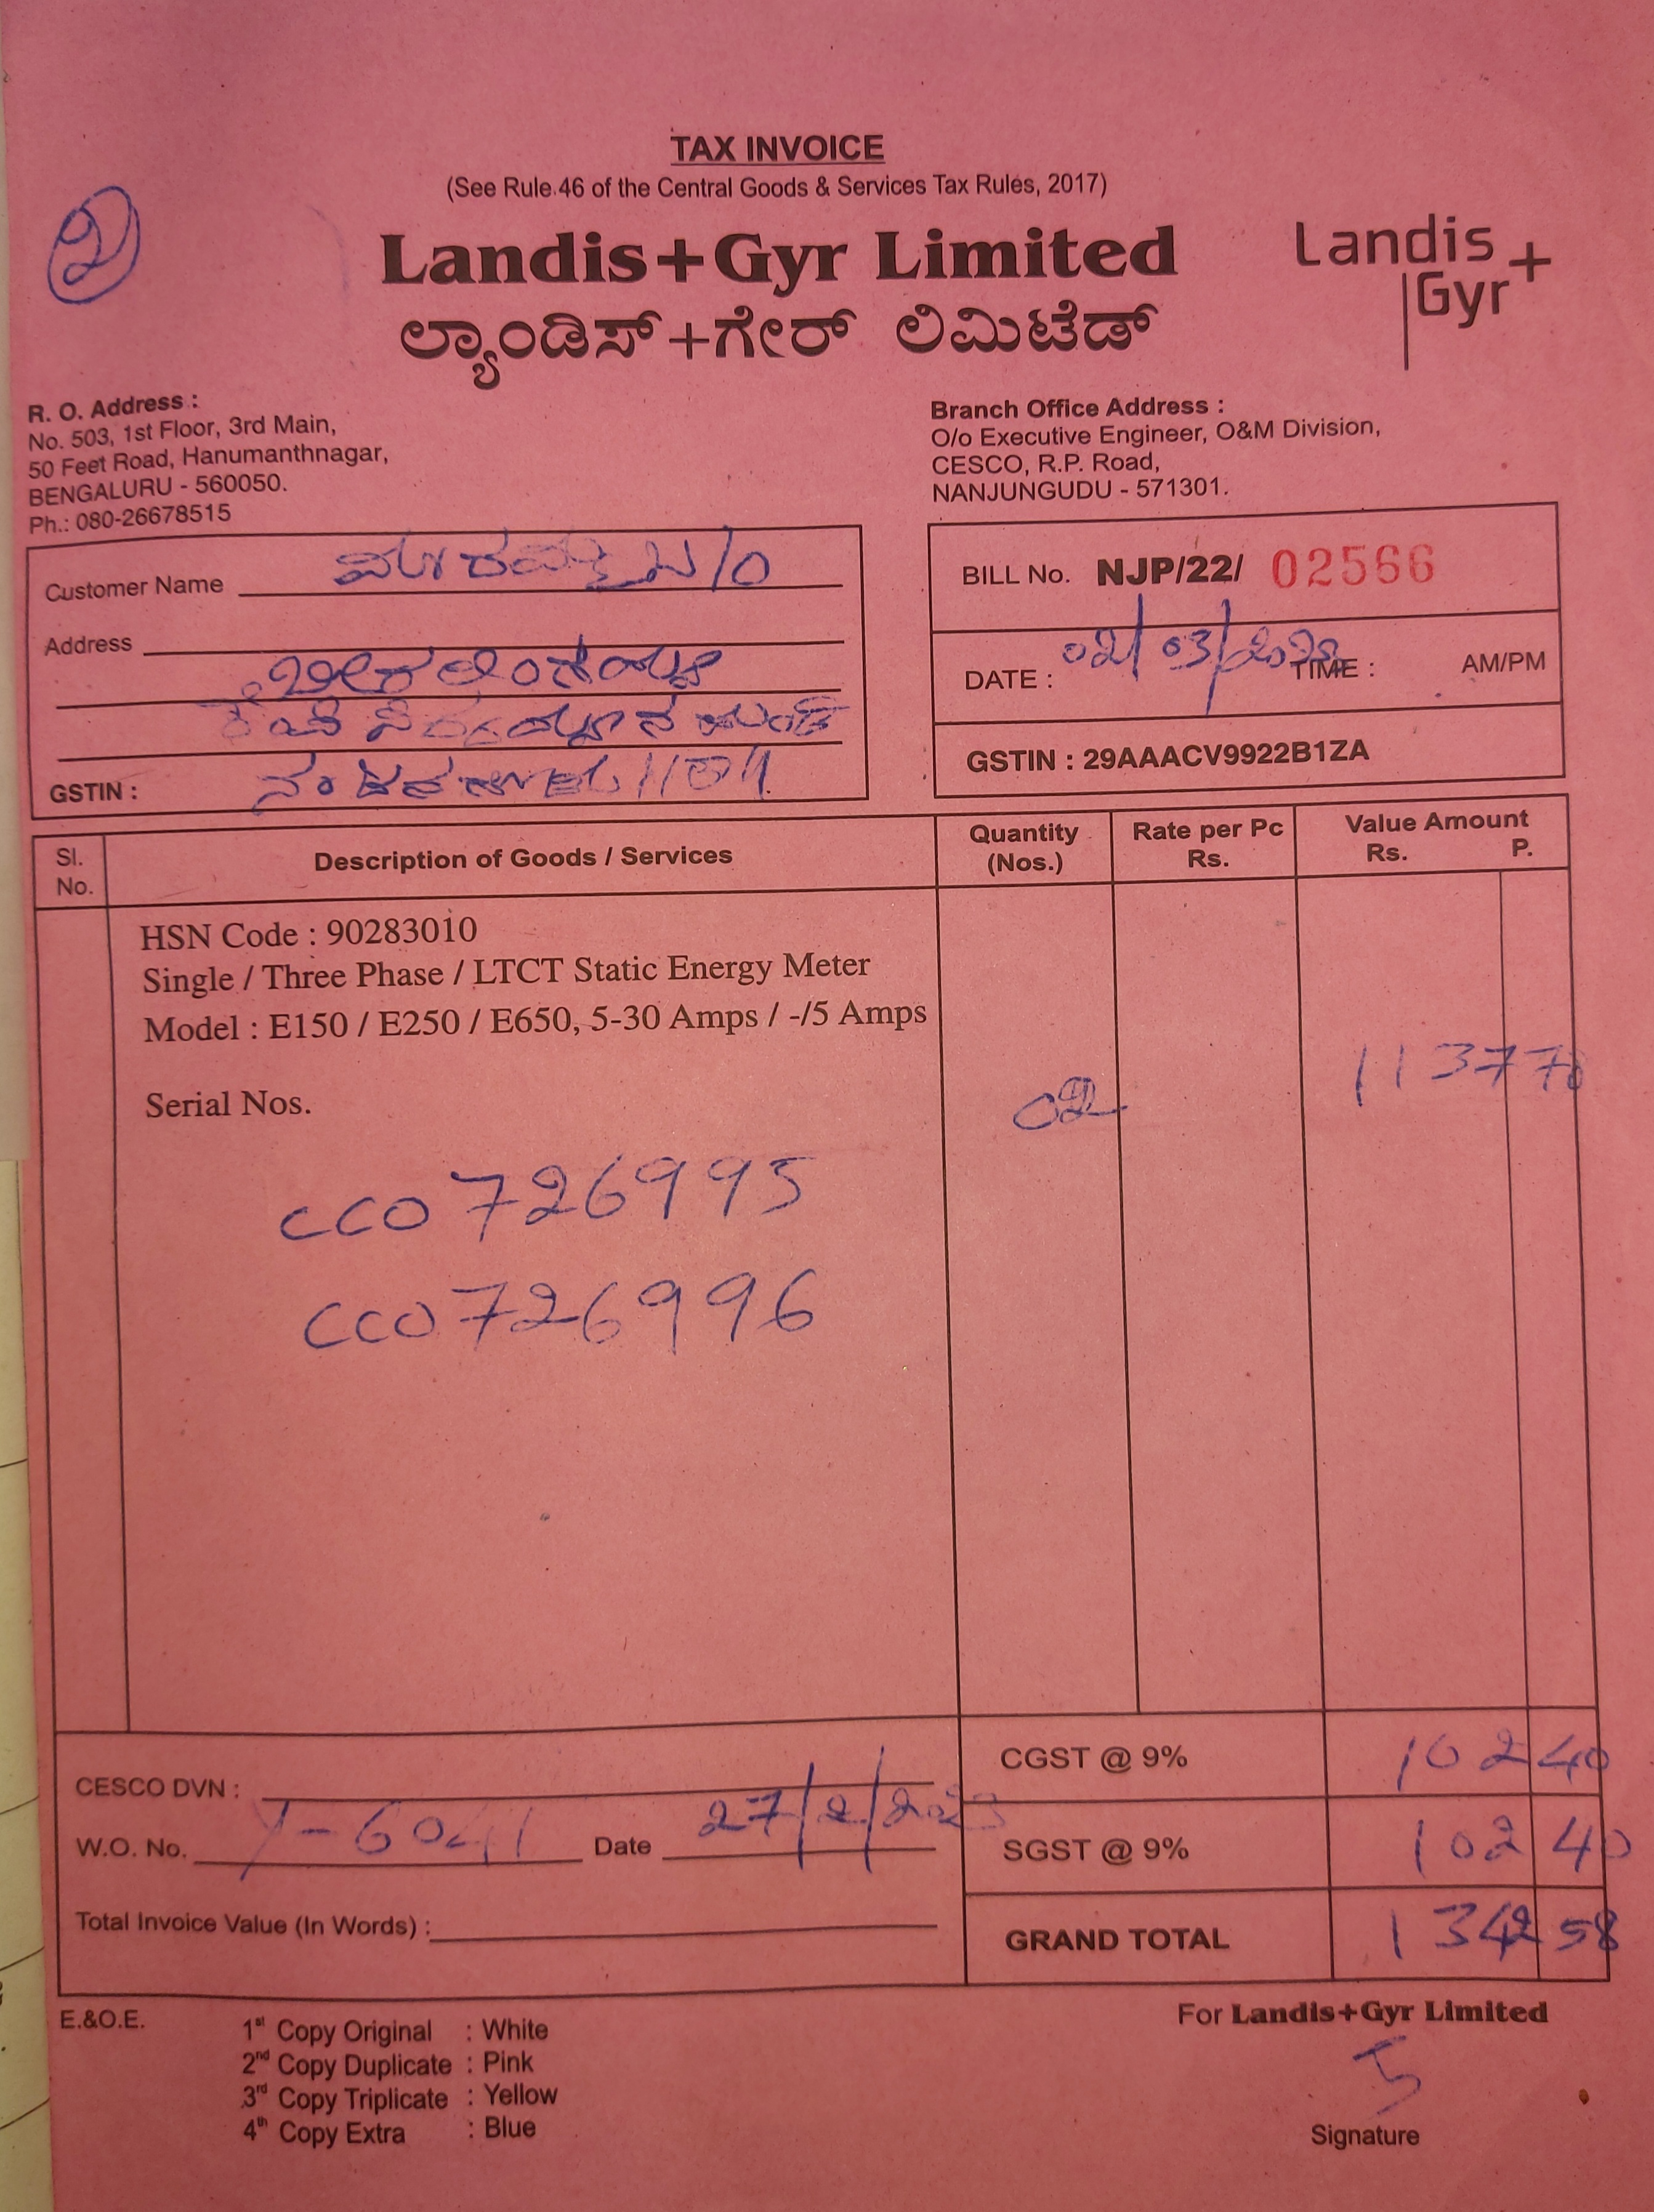 TAX INVOICE
(See Rule 46 of the Central Goods & Services Tax Rules, 2017)
2
Landis+Gyr Limited
Landis
Gyr+
ಲ್ಯಾಂಡಿಸ್+ಗೇರ್ ಲಿಮಿಟೆಡ್
R. O. Address :
No. 503, 1st Floor, 3rd Main,
50 Feet Road, Hanumanthnagar,
BENGALURU - 560050.
Ph.: 080-26678515
Branch Office Address :
O/o Executive Engineer, O&M Division,
CESCO, R.P. Road,
NANJUNGUDU - 571301.
Customer Name
Address
GSTIN :
BILL No. NJP/22/ 02566
DATE : 02/03/ TIME : AM/PM
GSTIN : 29AAACV9922B1ZA
Sl. No. Description of Goods / Services Quantity (Nos.) Rate per Pc Rs. Value Amount Rs. P.
HSN Code : 90283010
Single / Three Phase / LTCT Static Energy Meter
Model : E150 / E250 / E650, 5-30 Amps / -/5 Amps
Serial Nos. 02 1137 78
CC0726995
CC0726996
CGST @ 9% 102 40
SGST @ 9% 102 40
GRAND TOTAL 1342 58
CESCO DVN :
W.O. No. Y-6041 Date 27/2/2023
Total Invoice Value (In Words) :
E.&O.E.
1st Copy Original : White
2nd Copy Duplicate : Pink
3rd Copy Triplicate : Yellow
4th Copy Extra : Blue
For Landis+Gyr Limited
Signature